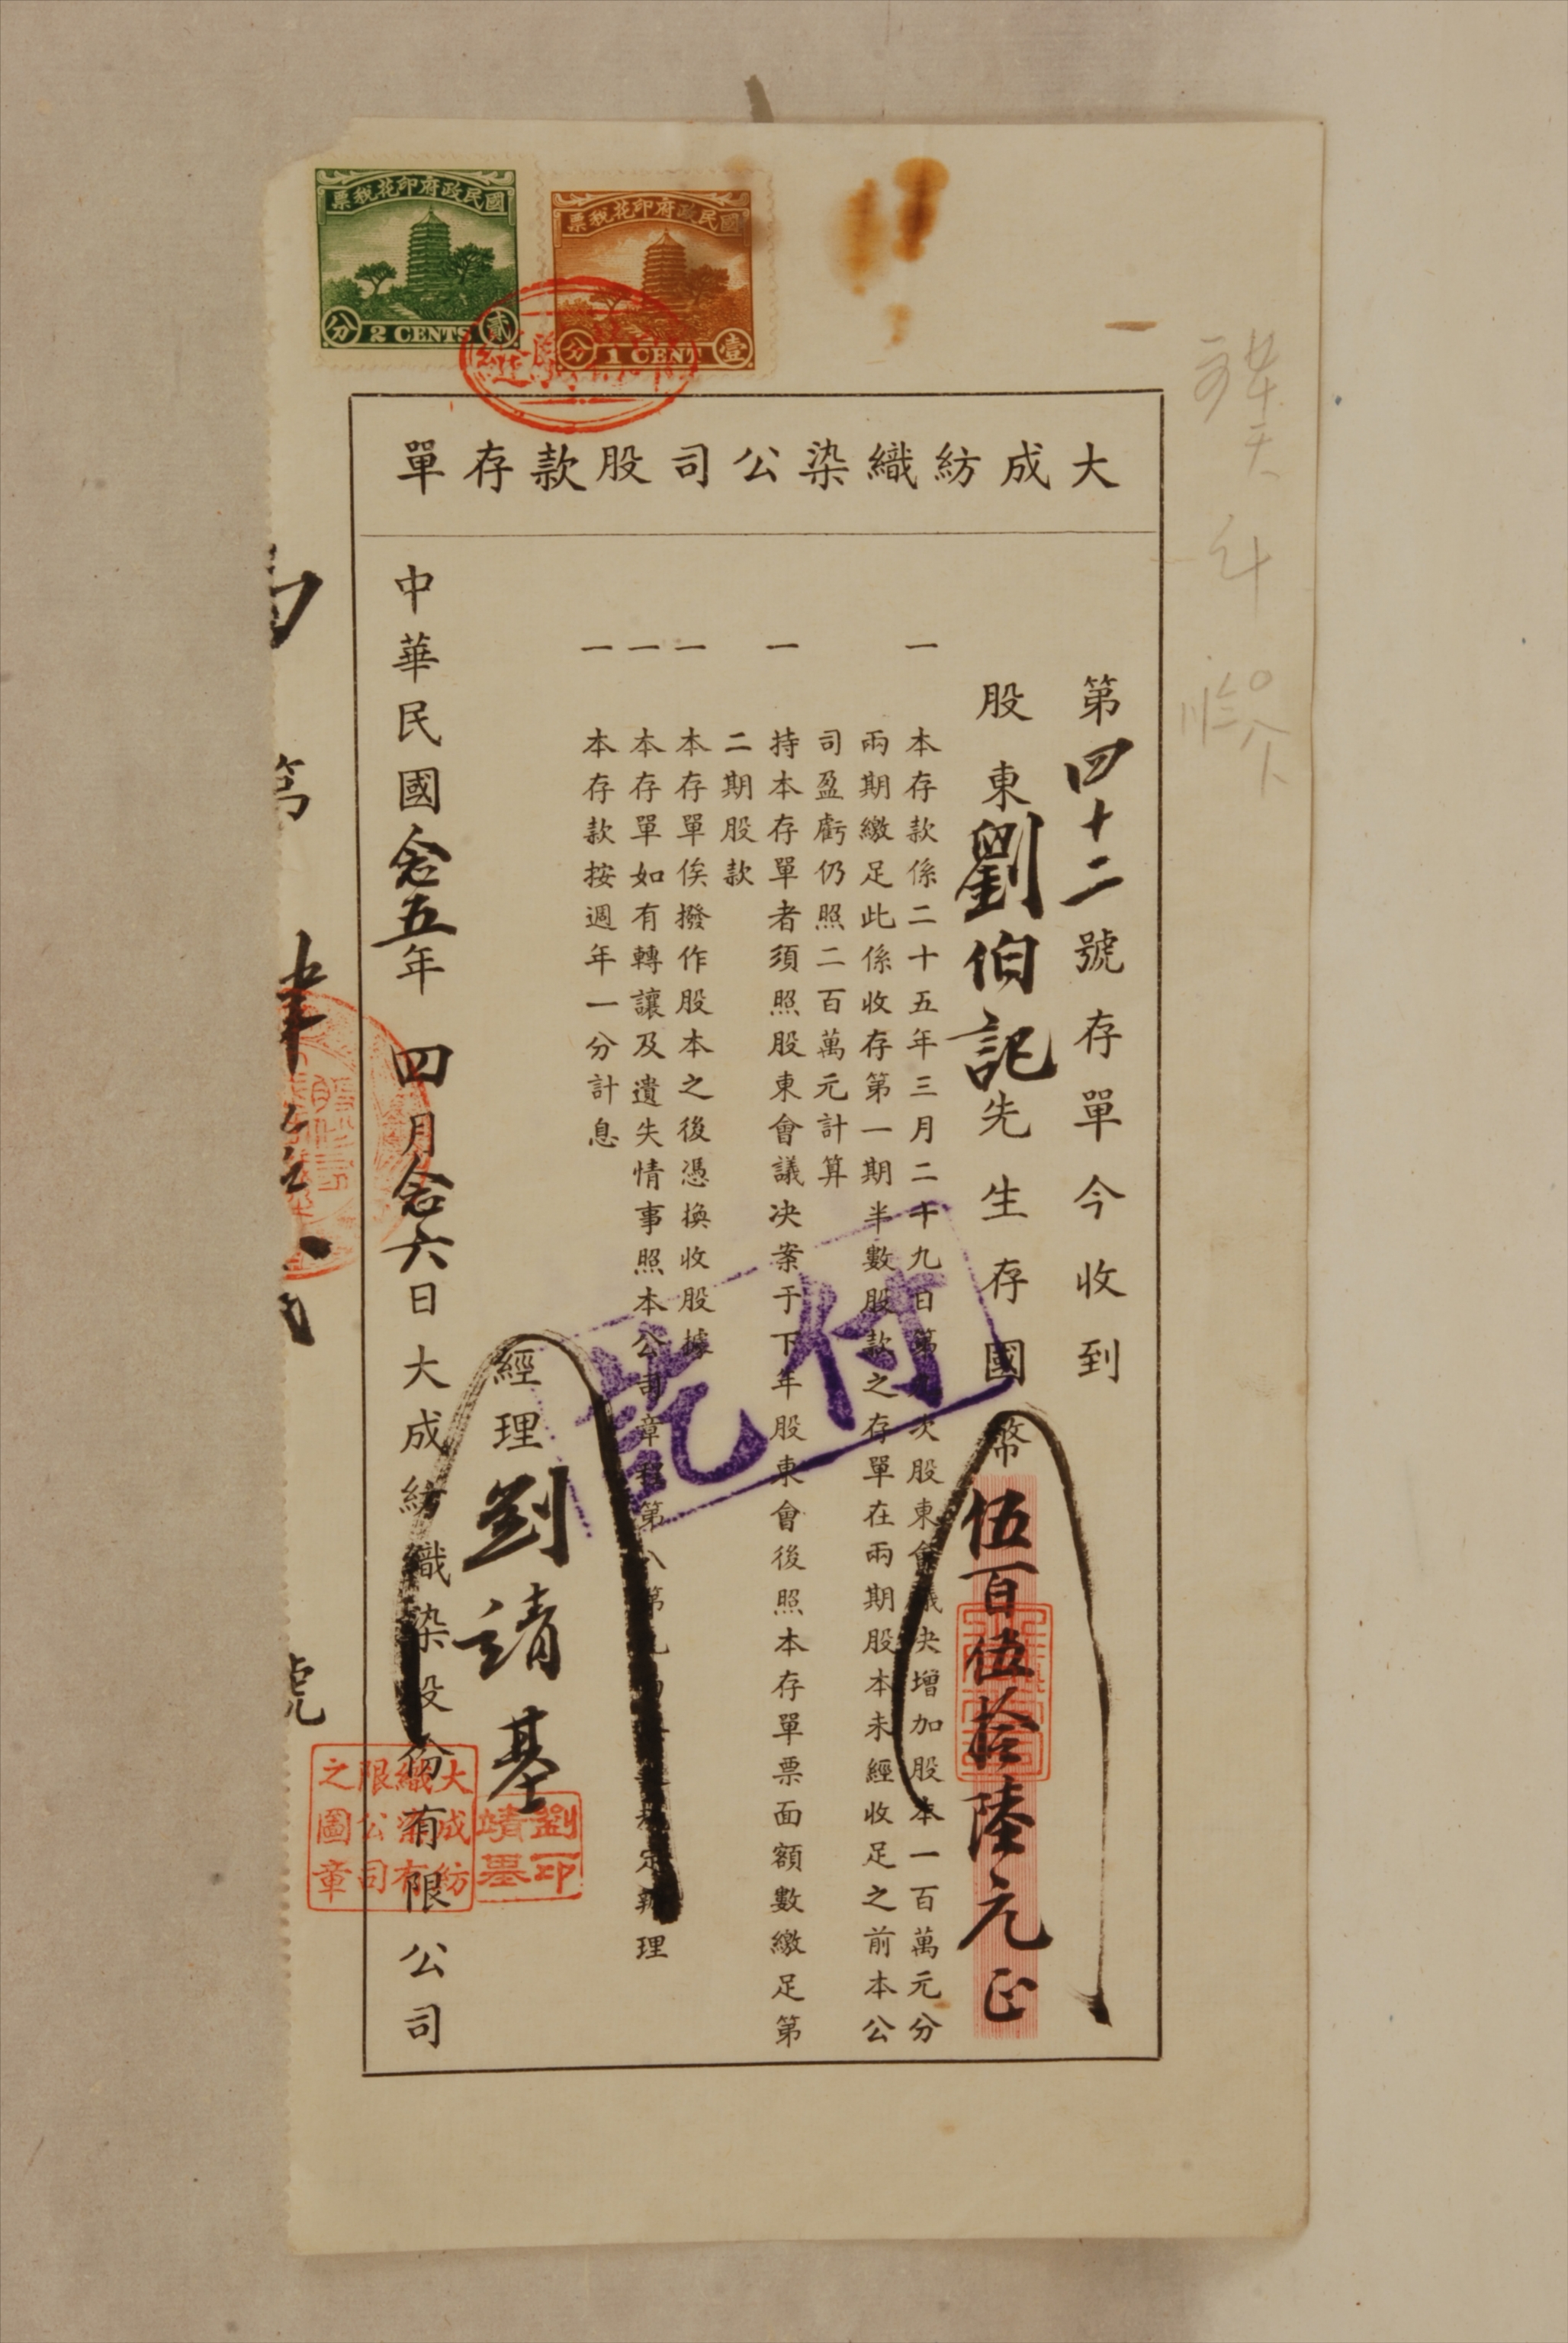 國民政府印花稅票
貳分
2 CENTS
國民政府印花稅票
壹分
1 CENT
大成紡織染公司股款存單
第四十二號存單今收到
股東劉伯記先生存國幣伍百伍拾陸元正
一 本存款係二十五年三月二十九日第 次股東會議決增加股本一百萬元分
兩期繳足此係收存第一期半數股款之存單在兩期股本未經收足之前本公
司盈虧仍照二百萬元計算
一 持本存單者須照股東會議決案于下年股東會後照本存單票面額數繳足第
二期股款
一 本存單俟撥作股本之後憑換收股據
一 本存單如有轉讓及遺失情事照本公司章程第八第九 定辦理
一 本存款按週年一分計息
付訖
經理劉靖基
劉靖基印
中華民國念五年四月念六日大成紡織染股份有限公司
大成紡織染有限公司之圖章
號